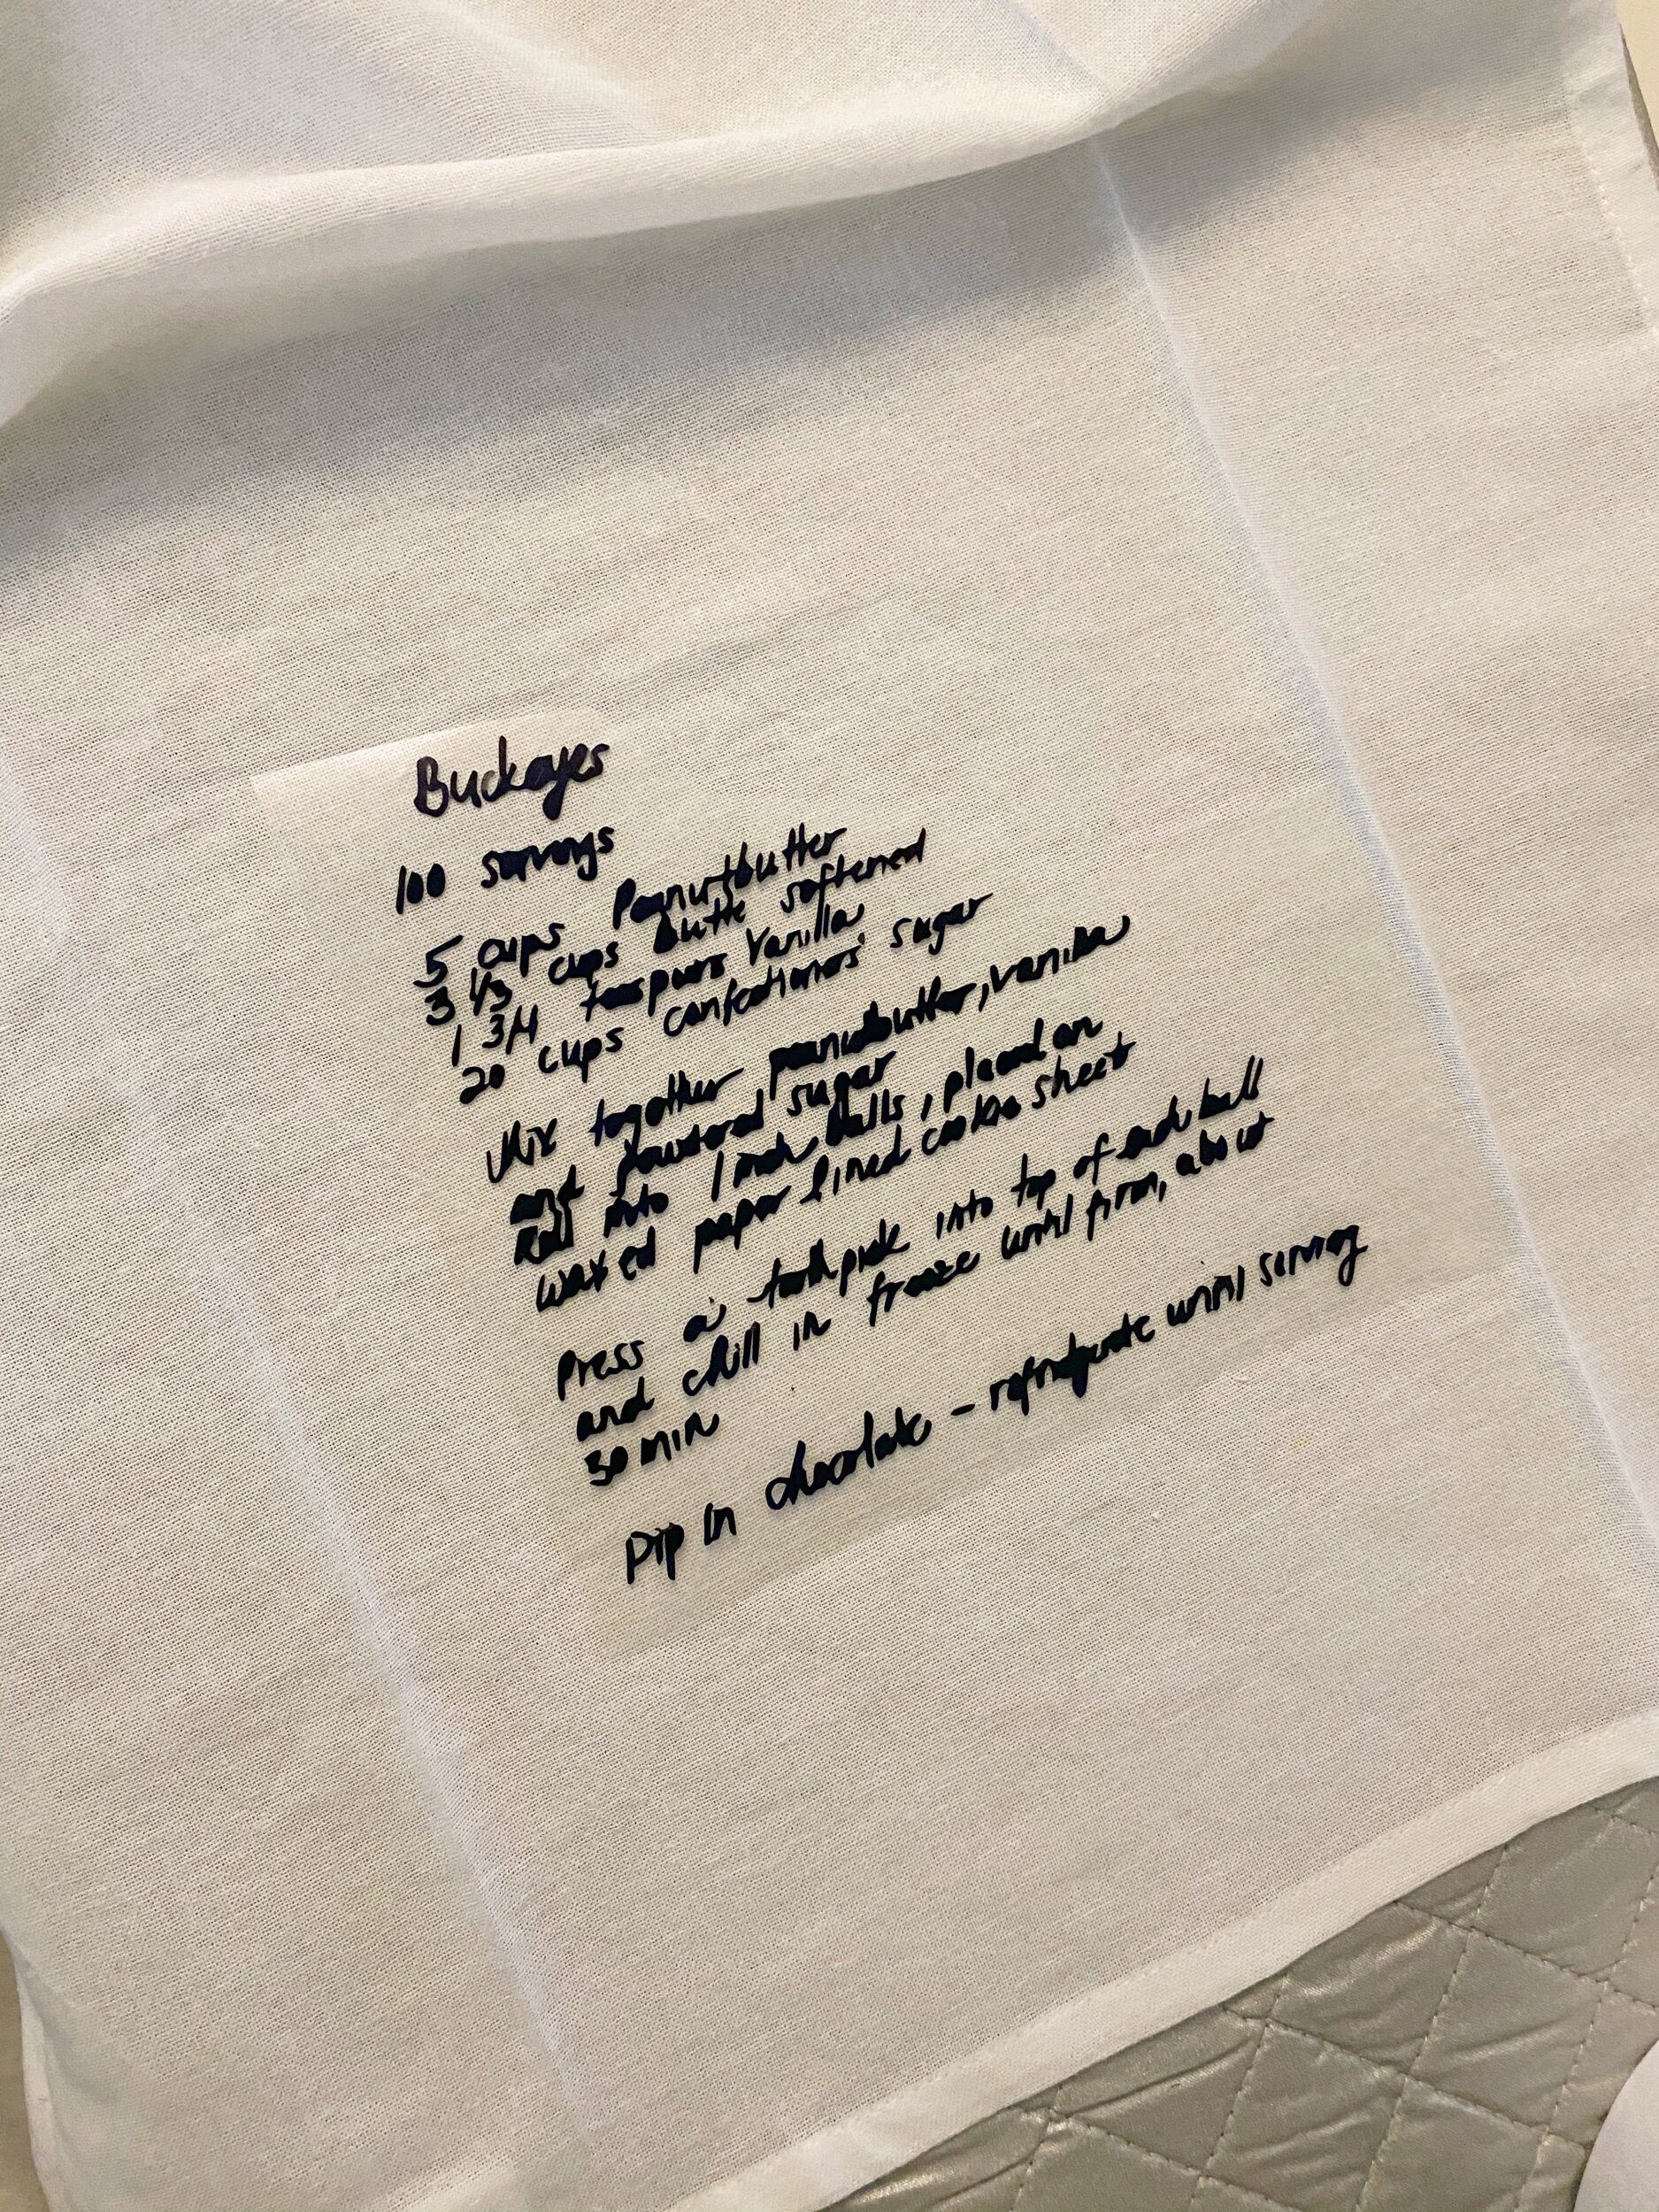 Buckeyes
100 servings
5 cups Peanutbutter
3 1/3 cups butte softened
1 3/4 teaspoons vanilla
20 cups confectioners' sugar
Mix together peanutbutter, vanilla
and powdered sugar
Roll into 1 inch balls, placed on
waxed paper lined cookie sheet
Press a toothpick into top of each ball
and chill in freeze until firm, about
30 min
Dip in chocolate - refridgerate until serving